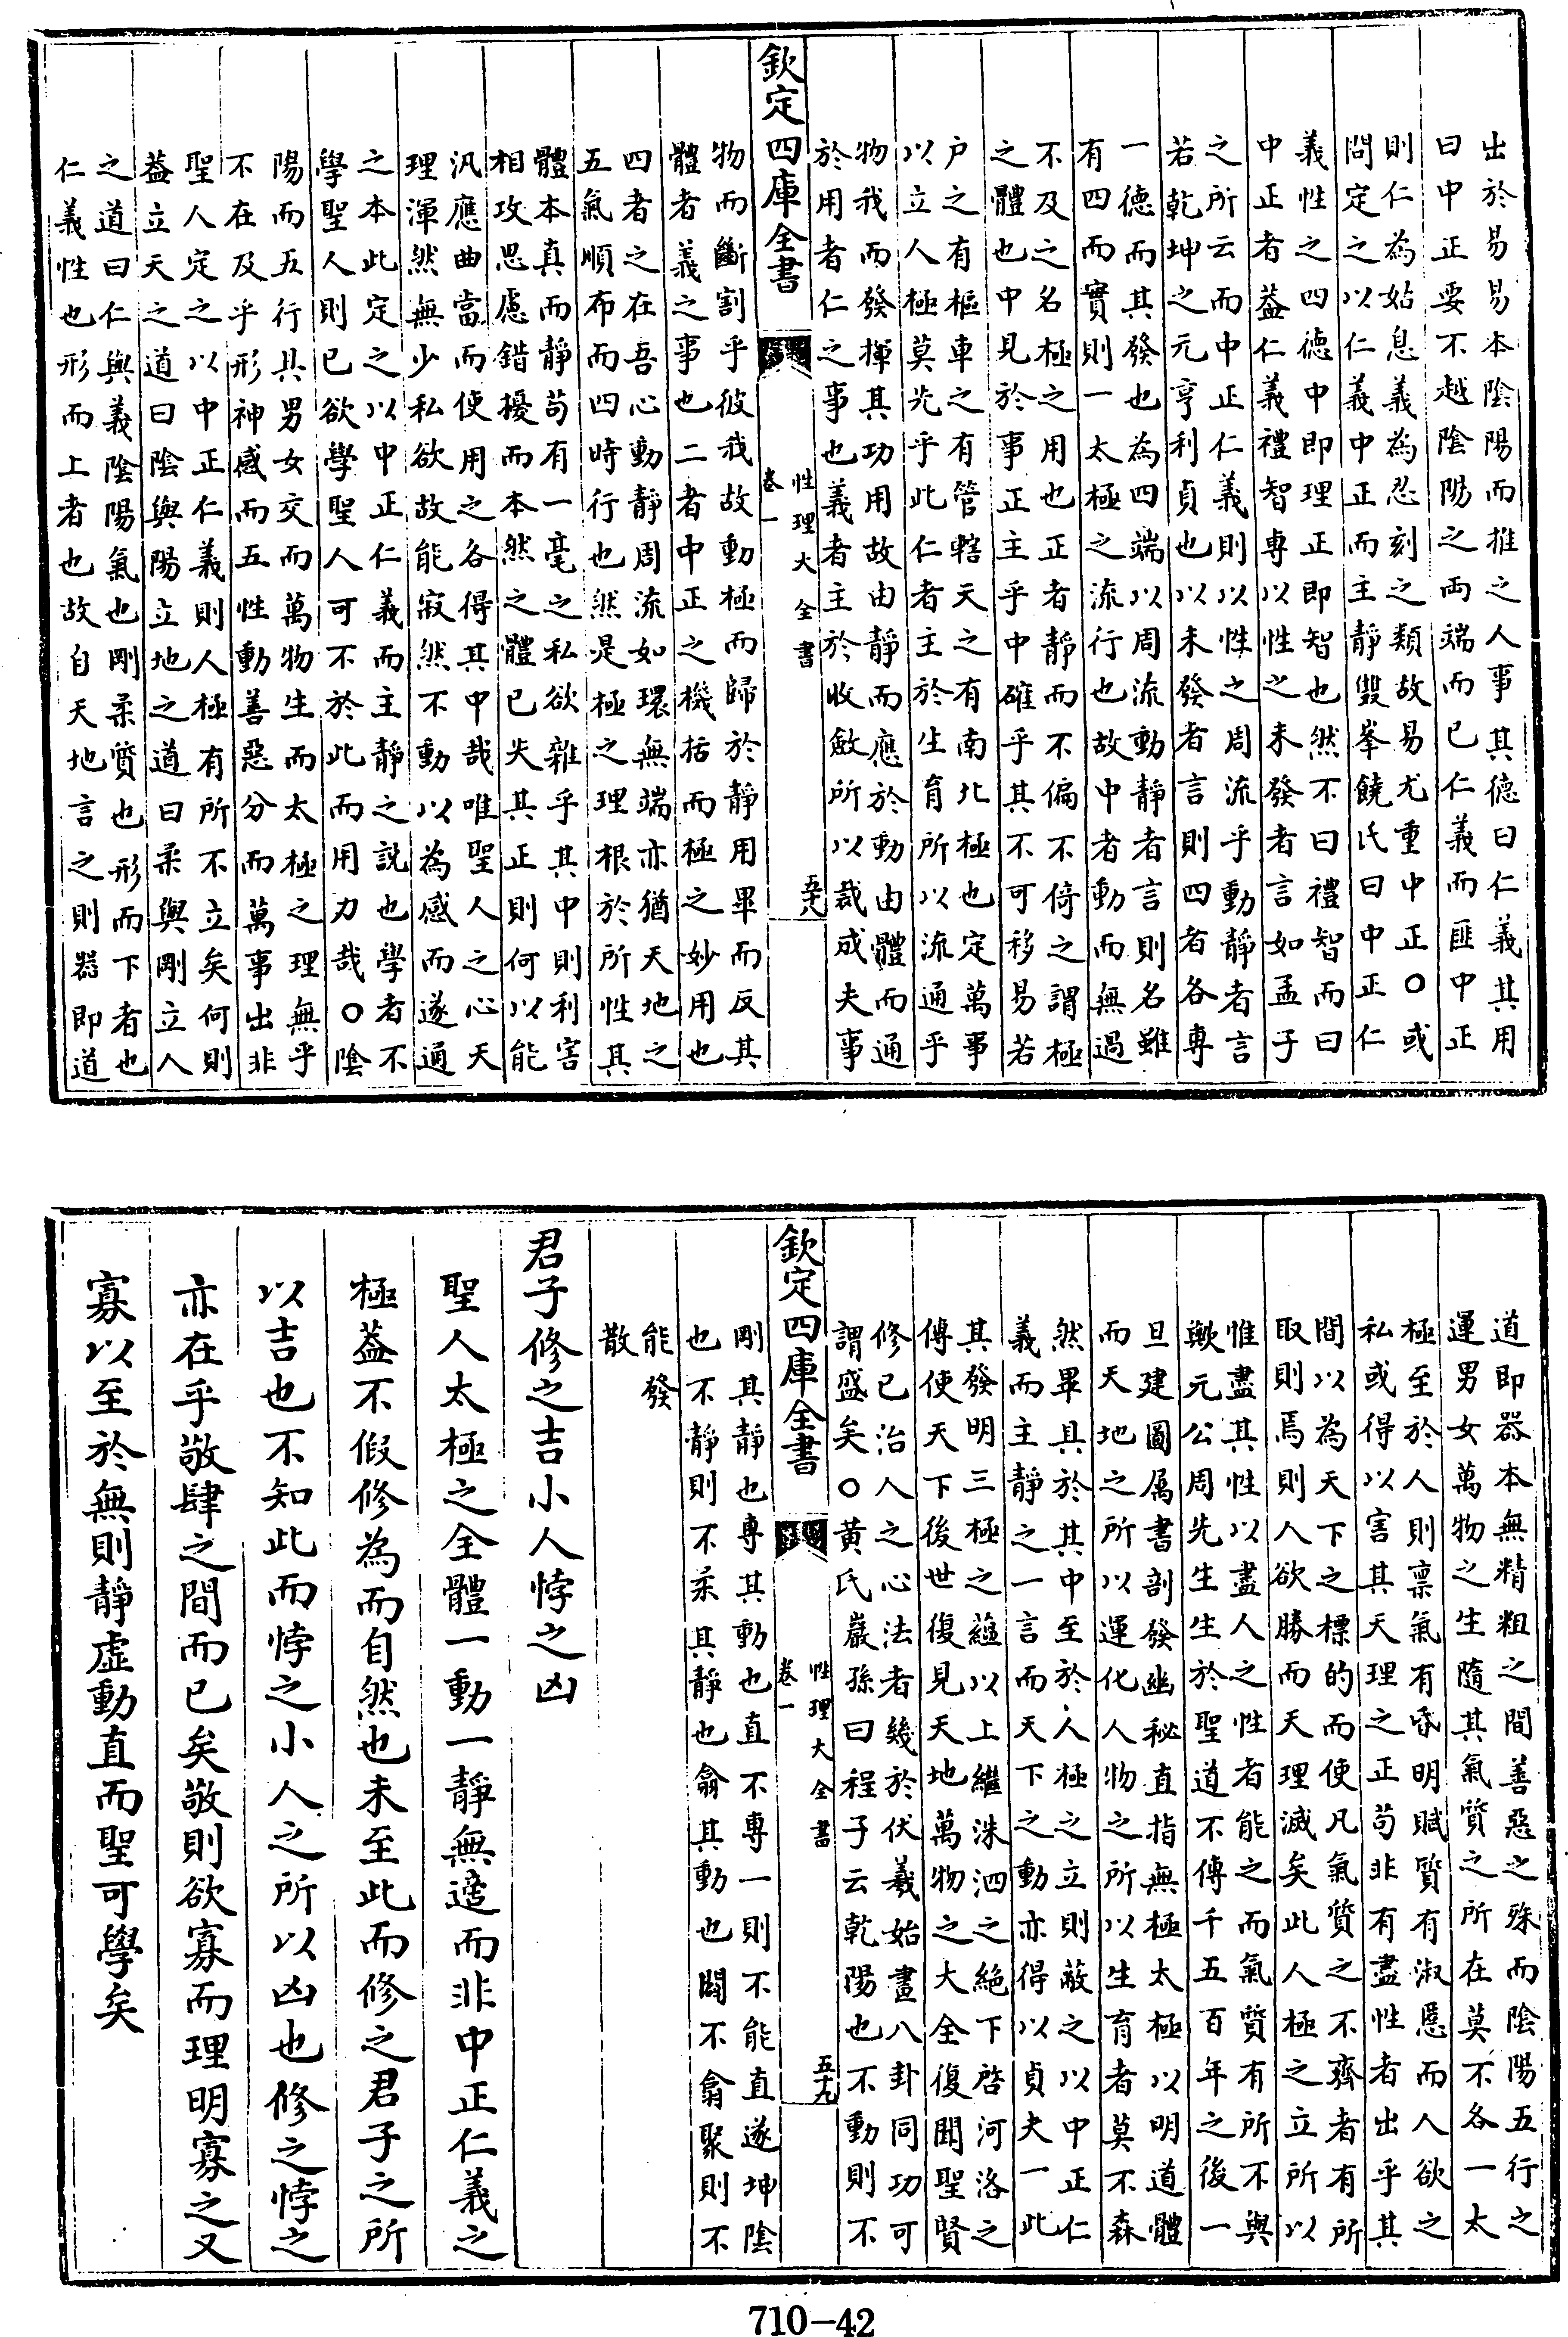 出於易易本陰陽而推之人事其德曰仁義其用
曰中正要不越陰陽之兩端而已仁義而匪中正
則仁為姑息義為忍刻之類故易尤重中正○或
問定之以仁義中正而主靜雙峯饒氏曰中正仁
義性之四德中即理正即智也然不曰禮智而曰
中正者葢仁義禮智專以性之未發者言如孟子
之所云而中正仁義則以性之周流乎動靜者言
若乾坤之元亨利貞也以未發者言則四者各專
一德而其發也為四端以周流動靜者言則名雖
有四而實則一太極之流行也故中者動而無過
不及之名極之用也正者靜而不偏不倚之謂極
之體也中見於事正主乎中確乎其不可移易若
户之有樞車之有管轄天之有南北極也定萬事
以立人極莫先乎此仁者主於生育所以流通乎
物我而發揮其功用故由靜而應於動由體而通
於用者仁之事也義者主於收斂所以裁成夫事
欽定四庫全書
性理大全書
卷一
五十八
物而斷割乎彼我故動極而歸於靜用畢而反其
體者義之事也二者中正之機括而極之妙用也
四者之在吾心動靜周流如環無端亦猶天地之
五氣順布而四時行也然是極之理根於所性其
體本真而靜苟有一毫之私欲雜乎其中則利害
相攻思慮錯擾而本然之體已失其正則何以能
汎應曲當而使用之各得其中哉唯聖人之心天
理渾然無少私欲故能寂然不動以為感而遂通
之本此定之以中正仁義而主靜之説也學者不
學聖人則已欲學聖人可不於此而用力哉○陰
陽而五行具男女交而萬物生而太極之理無乎
不在及乎形神感而五性動善惡分而萬事出非
聖人定之以中正仁義則人極有所不立矣何則
葢立天之道曰陰與陽立地之道曰柔與剛立人
之道曰仁與義陰陽氣也剛柔質也形而下者也
仁義性也形而上者也故自天地言之則器即道
道即器本無精粗之間善惡之殊而陰陽五行之
運男女萬物之生隨其氣質之所在莫不各一太
極至於人則禀氣有昏明賦質有淑慝而人欲之
私或得以害其天理之正苟非有盡性者出乎其
間以為天下之標的而使凡氣質之不齊者有所
取則焉則人欲勝而天理滅矣此人極之立所以
惟盡其性以盡人之性者能之而氣質有所不與
歟元公周先生生於聖道不傳千五百年之後一
旦建圖属書剖發幽秘直指無極太極以明道體
而天地之所以運化人物之所以生育者莫不森
然畢具於其中至於人極之立則蔽之以中正仁
義而主靜之一言而天下之動亦得以貞夫一此
其發明三極之蘊以上繼洙泗之絶下啓河洛之
傳使天下後世復見天地萬物之大全復聞聖賢
修已治人之心法者幾於伏羲始畫八卦同功可
謂盛矣○黄氏巖孫曰程子云乾陽也不動則不
欽定四庫全書
性理大全書
卷一
五十九
剛其靜也專其動也直不專一則不能直遂坤陰
也不靜則不柔其靜也翕其動也闢不翕聚則不
能發
散
君子修之吉小人悖之凶
聖人太極之全體一動一靜無適而非中正仁義之
極葢不假修為而自然也未至此而修之君子之所
以吉也不知此而悖之小人之所以凶也修之悖之
亦在乎敬肆之間而已矣敬則欲寡而理明寡之又
寡以至於無則靜虛動直而聖可學矣
710-42